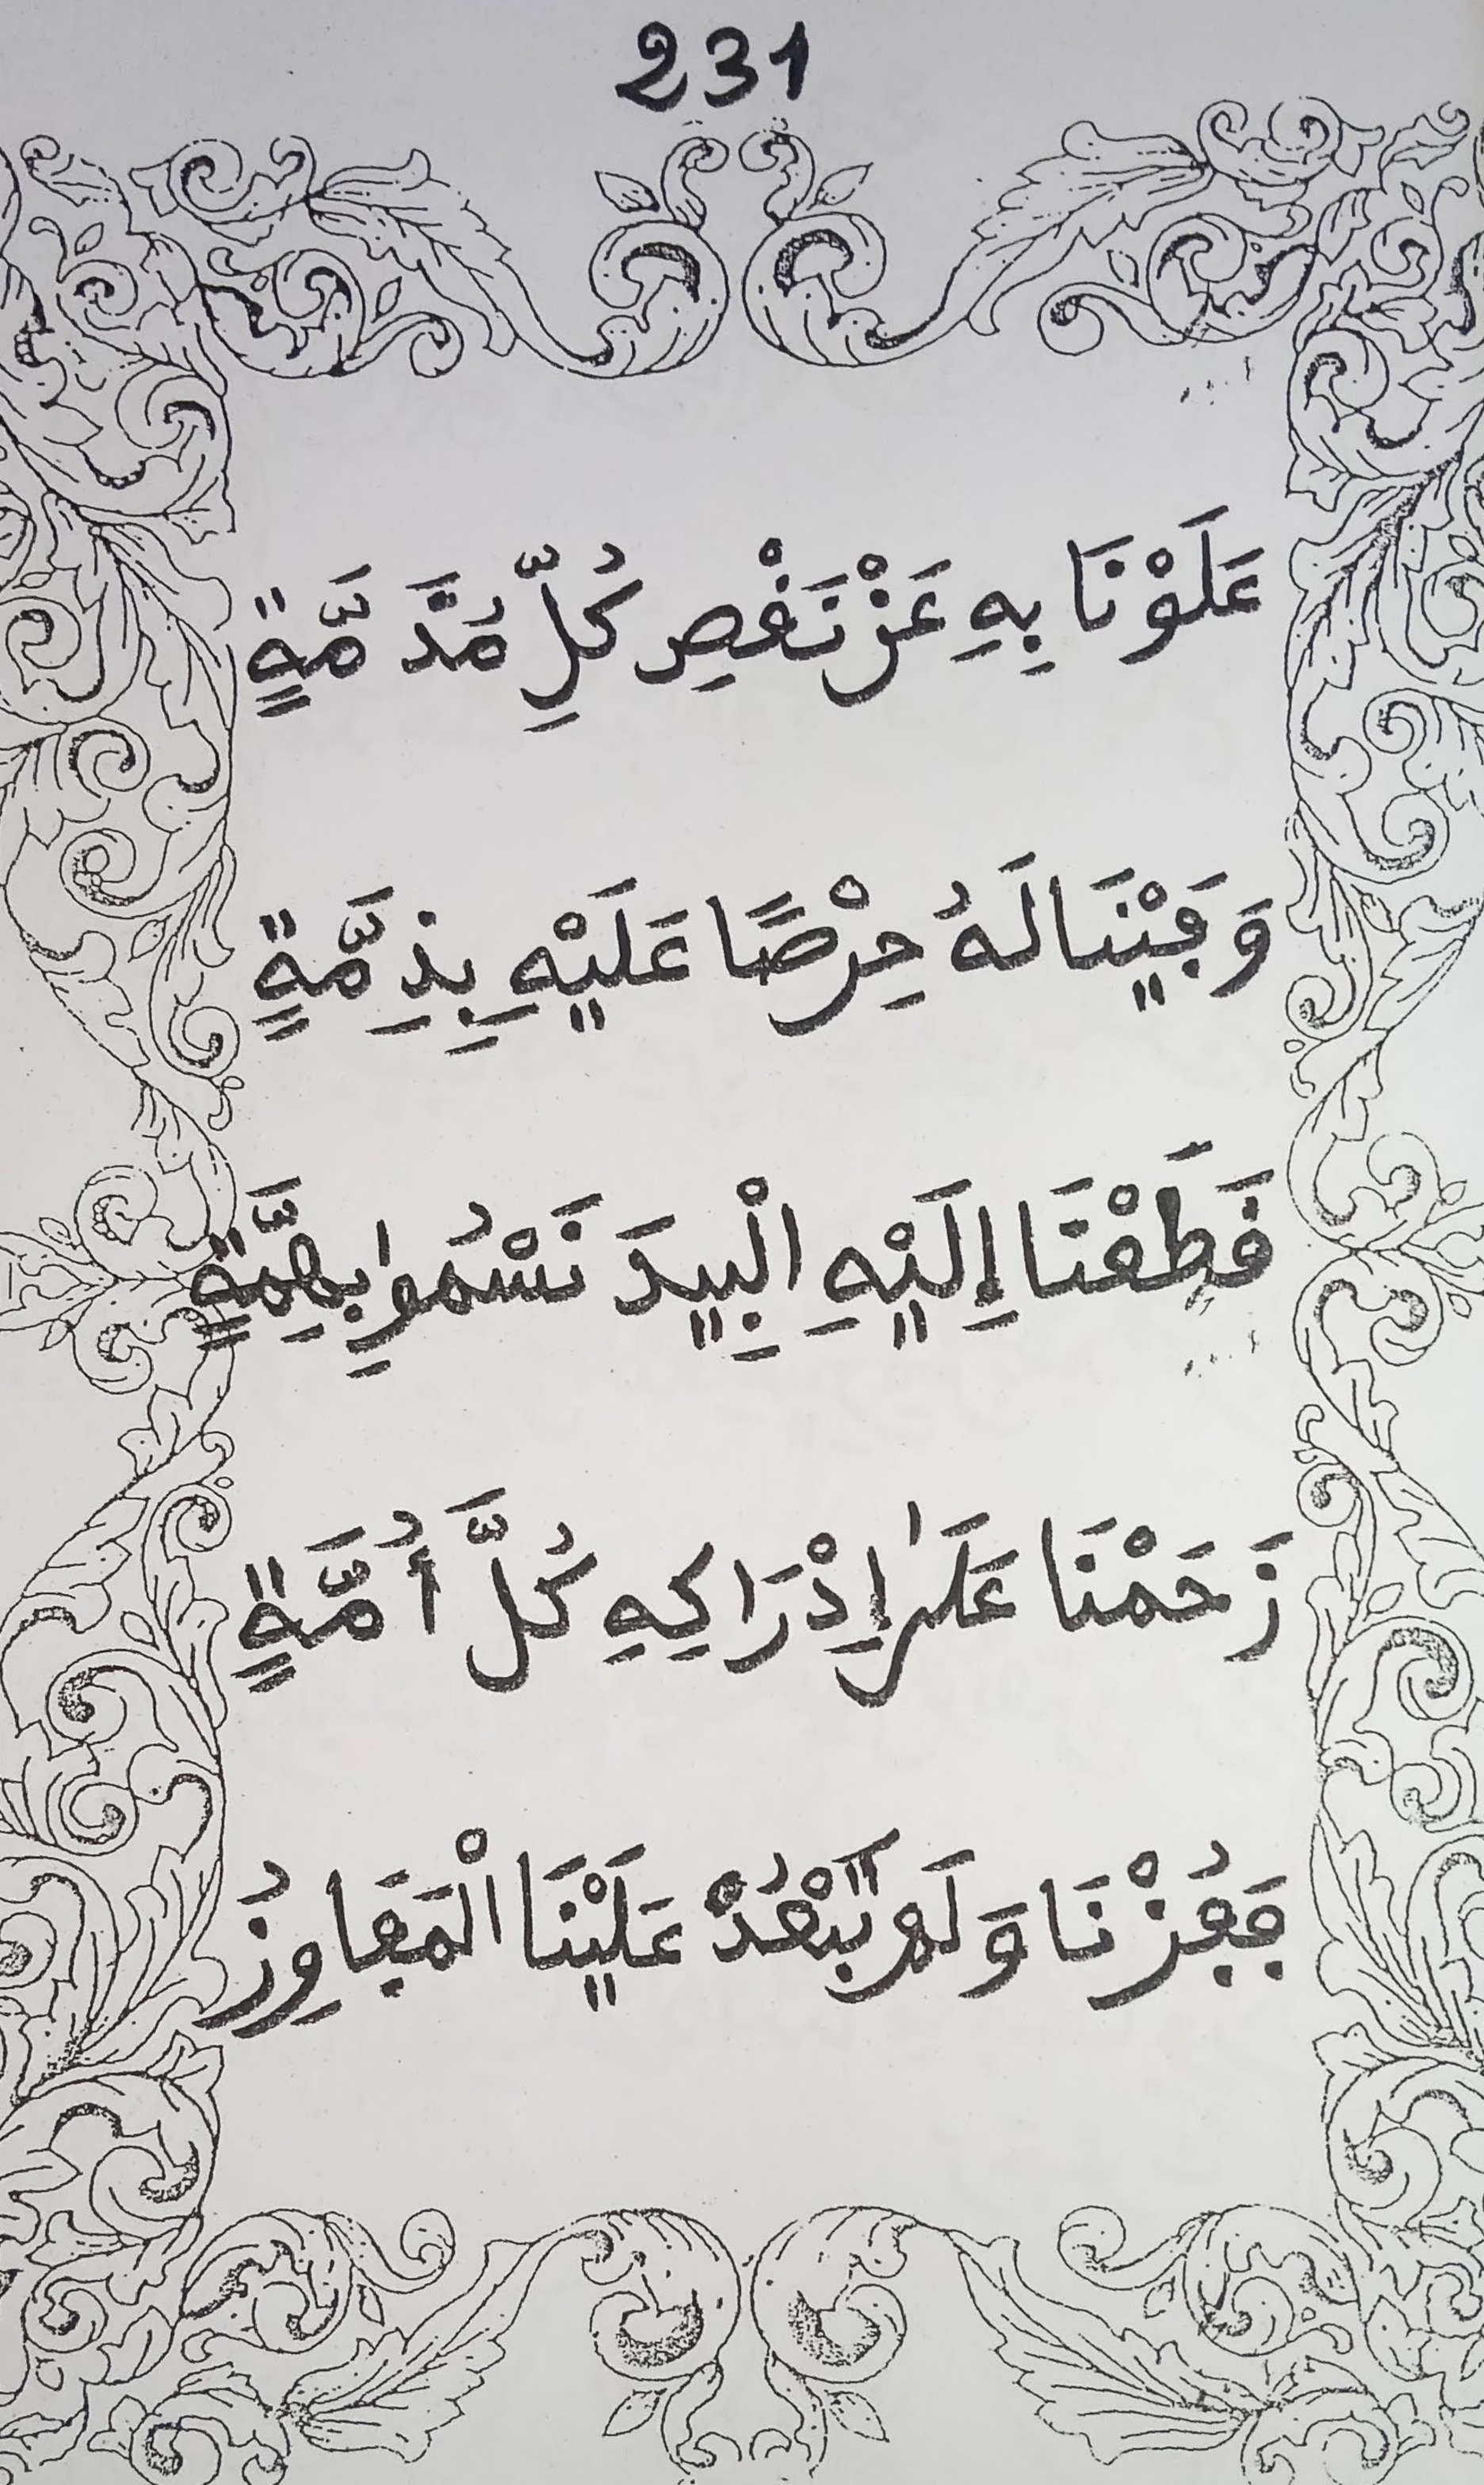 231
عَلَوْنَا بِهِ عَنْ نَقْصِ كُلِّ مُذَمَّةٍ
وَفَيْنَا لَهُ حِرْصًا عَلَيْهِ بِذِمَّةٍ
قَطَعْنَا إِلَيْهِ الْبِيدَ نَسْمُوا بِهِمَّةٍ
زَحَمْنَا عَلَىٰ إِدْرَاكِهِ كُلَّ أُمَّةٍ
فَفُزْنَا وَلَم تَبْعُدْ عَلَيْنَا الْمَفَاوِزُ